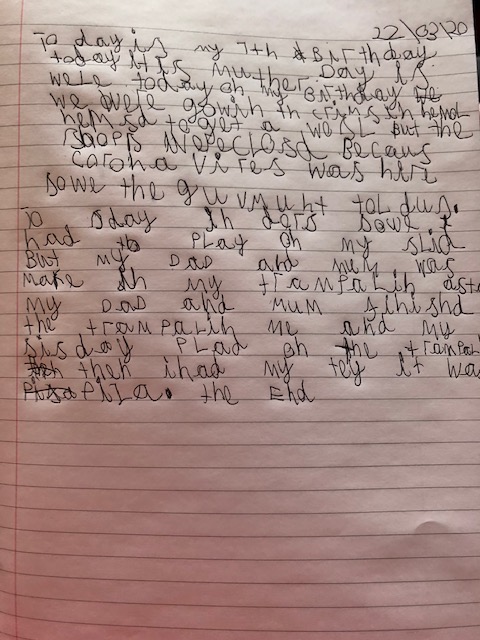 22\03\20
To day is my 7th Birthday
today it is muther Day is
were today on my Birthday we
we were gowin in
hemsd to get a we SL But the
shops wereclosd Becaus
corona vires was hir
sowe the guvmunt toldus.
To sday in ders sowe I
had to PLay on my slid
But my DaD and mum was
make in my trampalin
my DaD and mum finishd
the trampalin me and my
sisday PLad on the
then ihad my tey it was
PiZa. the End